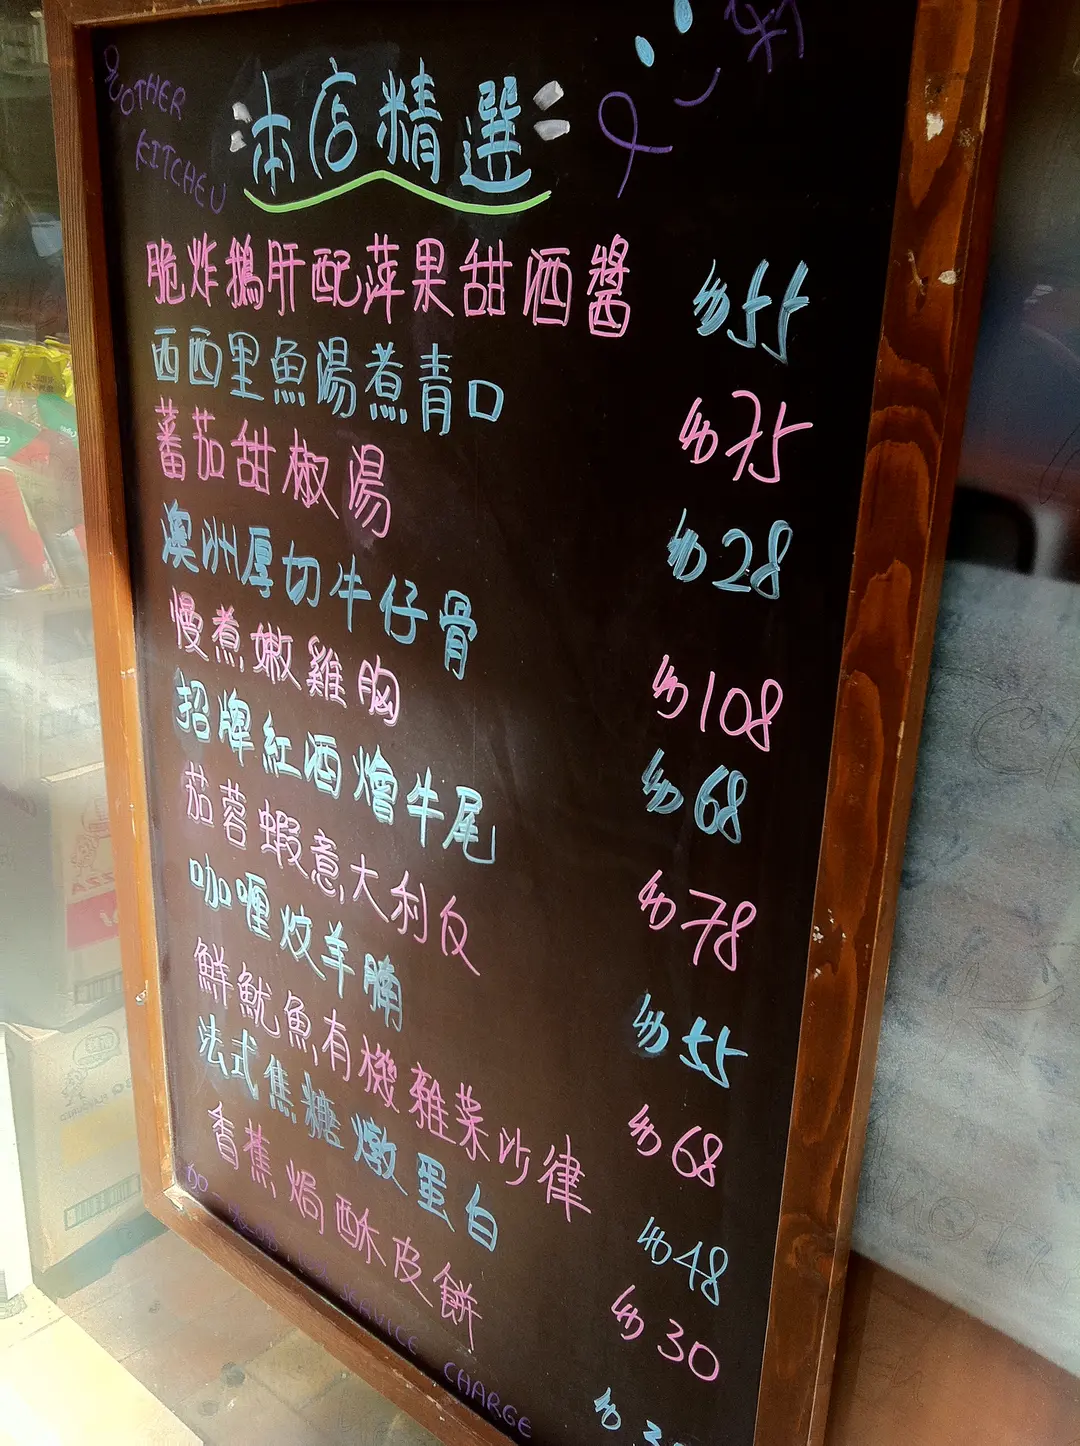 KITCHEN
本店精選
脆炸鵝肝配蘋果甜酒醬 $55
西西里魚湯煮青口 $75
蕃茄甜椒湯 $28
澳洲厚切牛仔骨 $108
慢煮嫩雞胸 $68
招牌紅酒燴牛尾 $78
茄蓉蝦意大利 $55
咖喱炆羊腩 $68
鮮魷魚有機雜菜沙律 $48
法式焦糖燉蛋白 $30
香蕉焗酥皮餅
SERVICE CHARGE